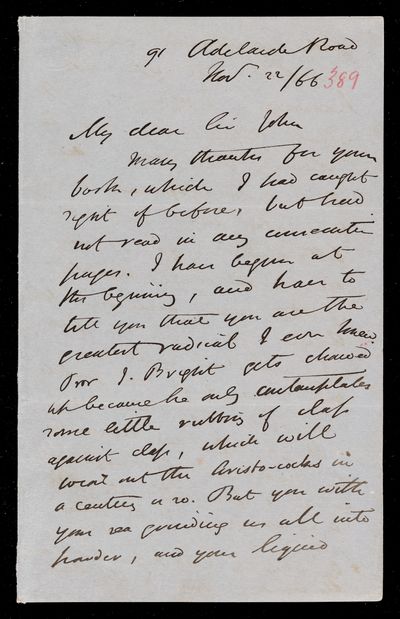 91 Adelaide Road
Nov. 22/66 389
My dear Sir John
Many thanks for your
book, which I had caught
sight of before, but had
not read in any consecutive
pages. I have begun at
the beginning, and have to
tell you that you are the
greatest radical I ever knew
Poor J. Bright gets chawed
up because he only contemplates
some little rubbing of class
against class, which will
wear out the Aristo-cocks in
a century or so. But you with
your sea grinding us all into
powder, and your liquid